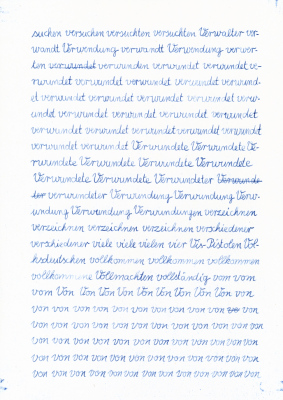 suchen versuchen versuchten versuchten Verwalter ver-
wandt Verwendung verwandt Verwendung verwer-
ten verwundet verwunden verwundet verwundet ve-
rwundet verwundet verwundet verwundet verwund-
et verwundet verwundet verwundet verwundet verw-
undet verwundet verwundet verwundet verwundet
verwundet verwundet verwundet verwundet verwundet
verwundet verwundet Verwundete Verwundete Ve-
rwundete Verwundete Verwundete Verwundete
Verwundete Verwundete Verwundeter Verwunde-
ter verwundeter Verwundung Verwundung Verw-
undung Verwundung Verwundungen verzeichnen
verzeichnen verzeichnen verzeichnen verschiedener
verschiedener viele viele vielen vier Vis-Pistolen Vol-
ksdeutschen vollkommen vollkommen vollkommen
vollkommene Vollmachten vollständig vom vom
vom Von Von Von Von Von Von Von Von von
von von von von von von von von von von
von von von von von von von von von von von
von von von von von von von von von von von
von von von von von von von von von von von
von von von von von von von von von von von